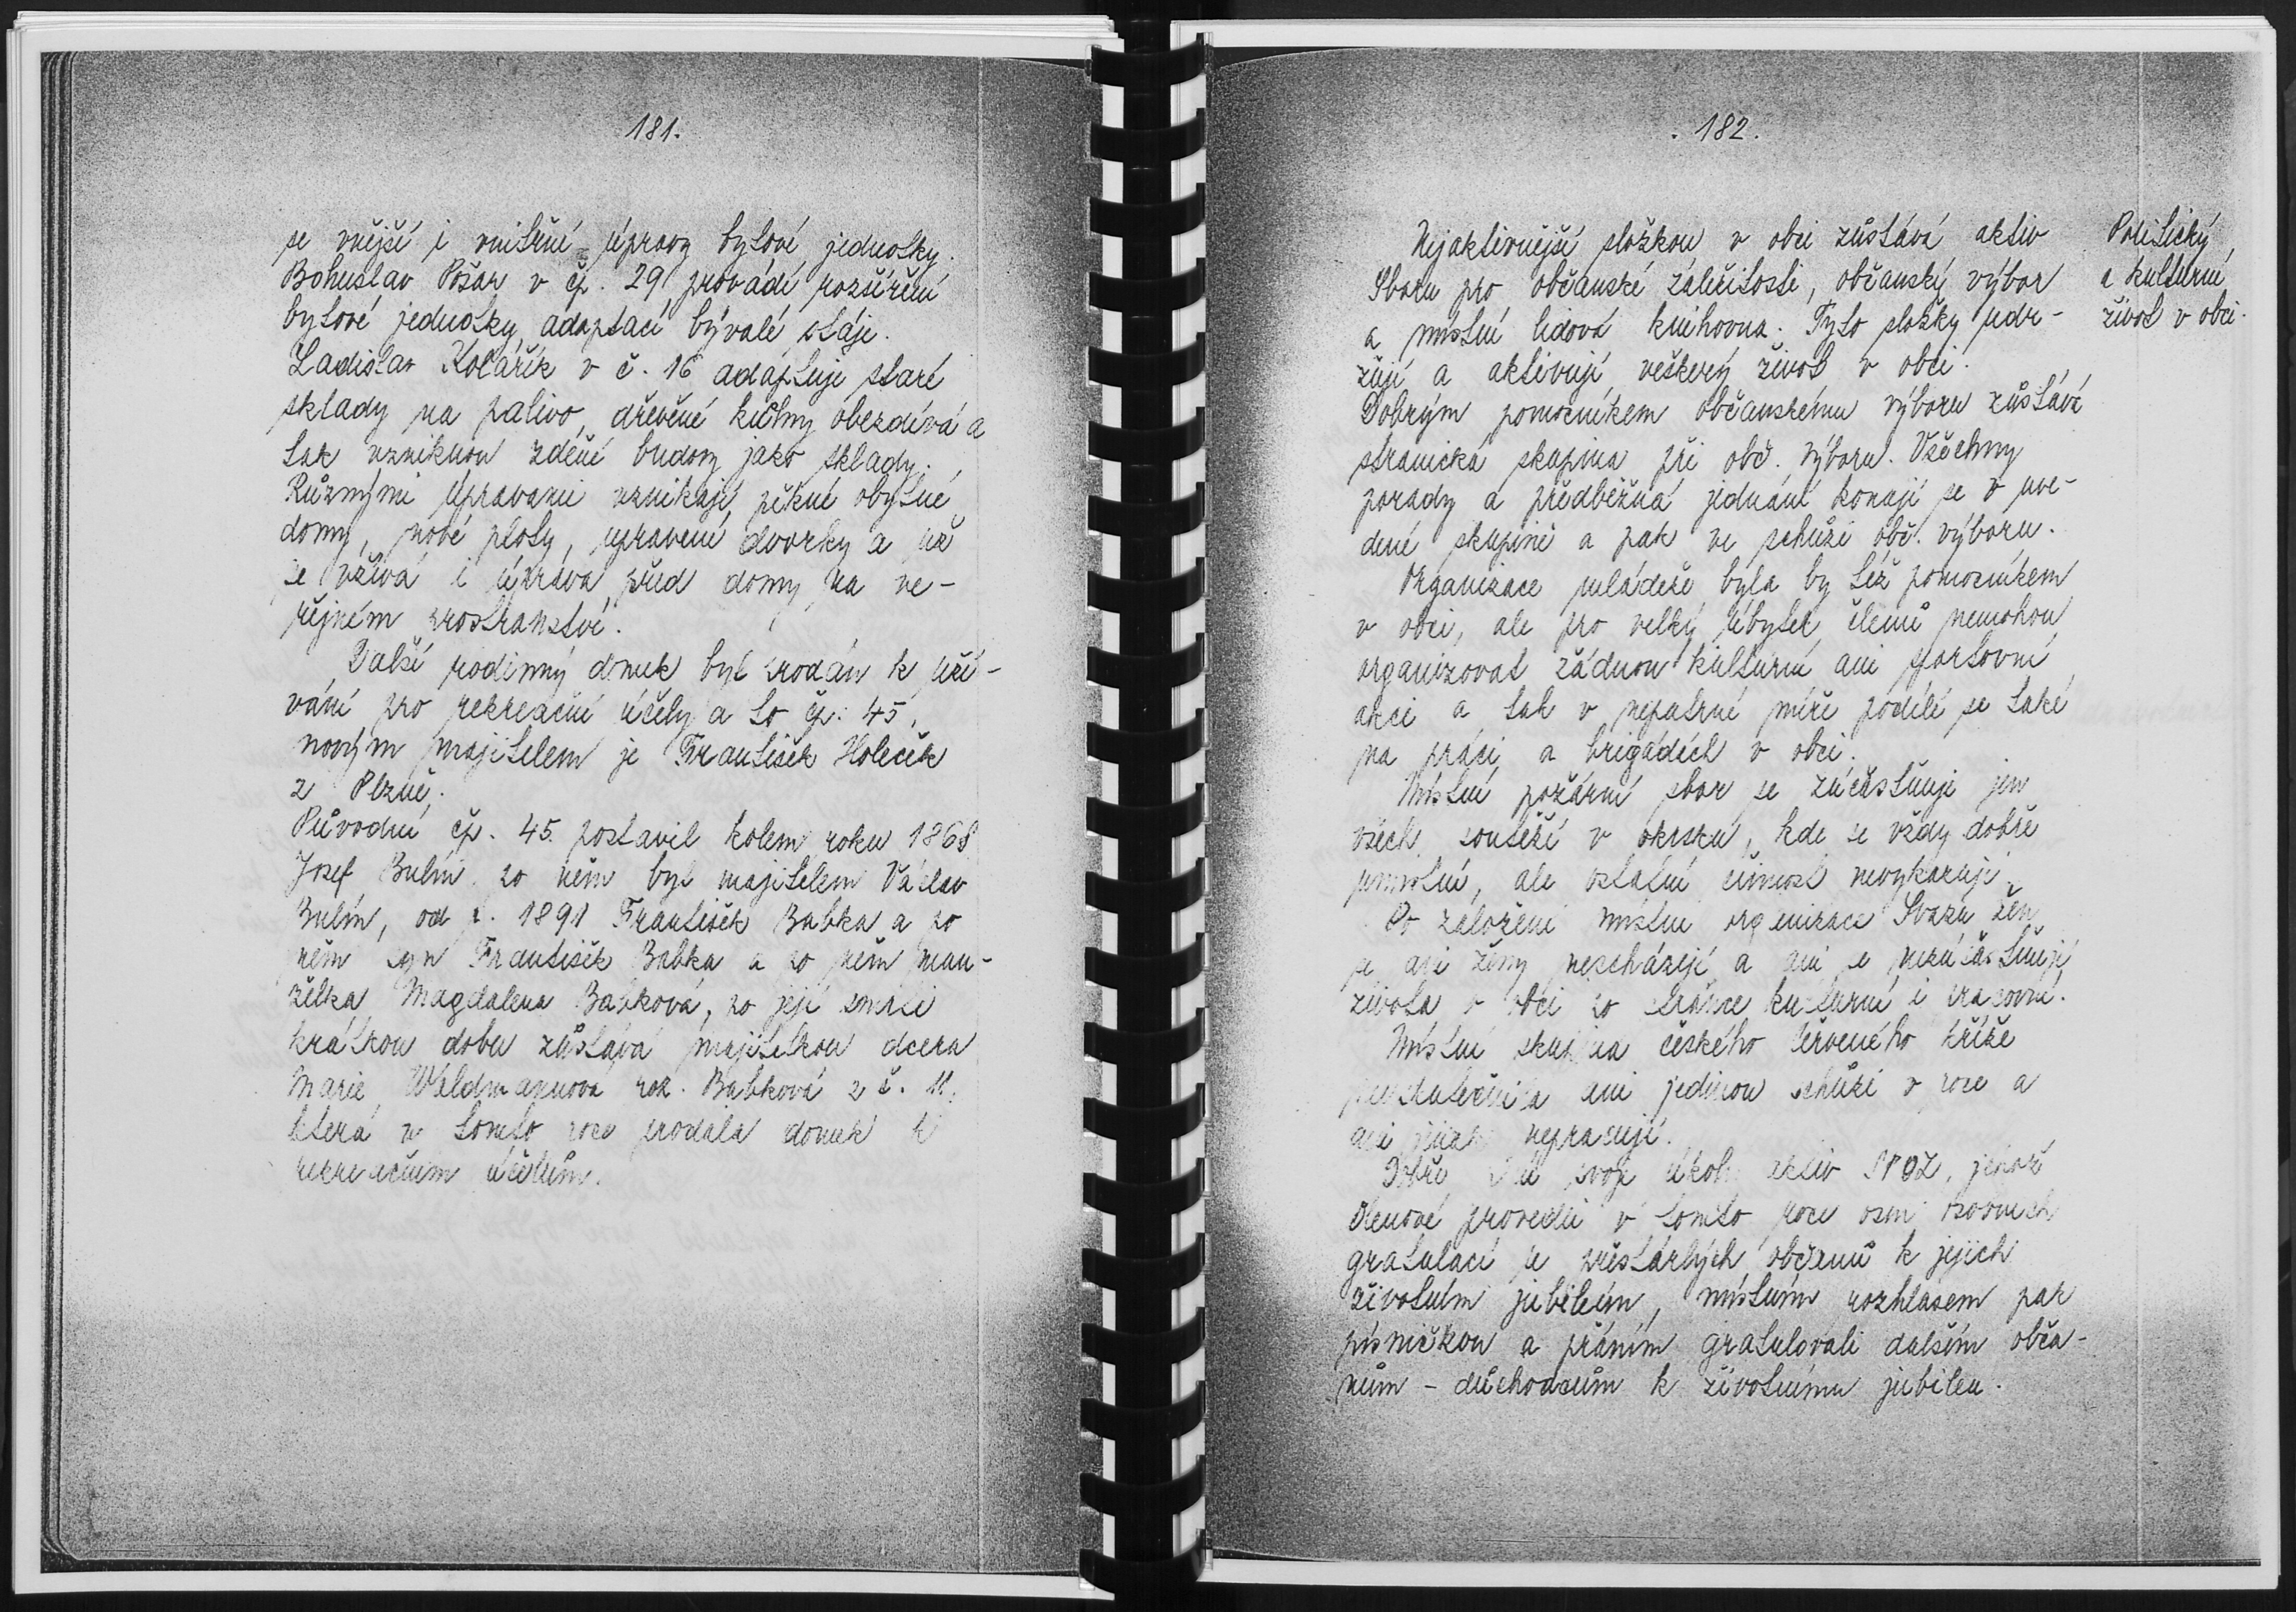 181.
se vnější i vnitřní úpravy bytové jednotky.
Bohuslav Požar v čp. 29 provádí rozšíření
bytové jednotky, adaptací bývalé stáje.
Ladislav Kolařík v č. 16 adaptuje staré
sklady na palivo, dřevěné kůlny obezdívá a
tak vzniknou zděné budovy jako sklady.
Různými úpravami vznikají pěkné obytné
domy, nové ploty, upravené dvorky a už
se vžívá i úprava před domy na ve-
řejném prostranství.
Další rodinný domek byl prodán k uží-
vání pro rekreační účely a to čp. 45,
novým majitelem je František Holeček
z Plzně.
Původní čp. 45. postavil kolem roku 1868
Josef Bulín, po něm byl majitelem Václav
Bulín, od r. 1891 František Babka a po
něm syn František Babka a po něm man-
želka Magdalena Babková, po její smrti
krátkou dobu zůstává majitelkou dcera
Marie Waldmannová roz. Babková z č. 11.
která v tomto roce prodala domek k
rekreačním účelům.
182.
Nejaktivnější složkou v obci zůstává aktiv
Sboru pro občanské záležitosti, občanský výbor
a místní lidová knihovna. Tyto složky udr-
žují a aktivují veškerý život v obci.
Dobrým pomocníkem občanskému výboru zůstává
stranická skupina při obč. výboru. Všechny
porady a předběžná jednání konají se v uve-
dené skupině a pak ve schůzi obč. výboru.
Organizace mládeže byla by též pomocníkem
v obci, ale pro velký úbytek členů nemohou
organizovat žádnou kulturní ani sportovní
akci a tak v nepatrné míře podílí se také
na práci a brigádách v obci.
Místní požární sbor se zúčastňuje jen
všech soutěží v okrsku, kde se vždy dobře
umístní, ale ostatní činnost nevykazuje.
Po založení místní organizace Svazu žen
se ani ženy nescházejí a ani se nezúčastňují
života v obci po stránce kulturní i pracovní.
Místní skupina českého červeného kříže
neuskutečnila ani jedinou schůzi v roce a
ani jinak nepracují.
Dobře svoje úkoly aktiv SPOZ, jehož
členové provedli v tomto roce osm osobních
gratulací u přestárlých občanů k jejich
životním jubileím, místním rozhlasem pak
písničkou a přáním gratulovali dalším obča-
nům - důchodcům k životnímu jubileu.
Politický
a kulturní
život v obci.